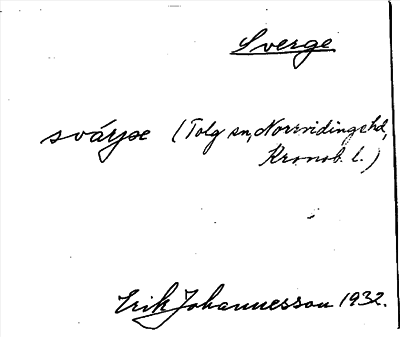 Sverge
svárjæ (Tolg sn, Norrvidinge hd,
Kronob. l.)
Erik Johannesson 1932.